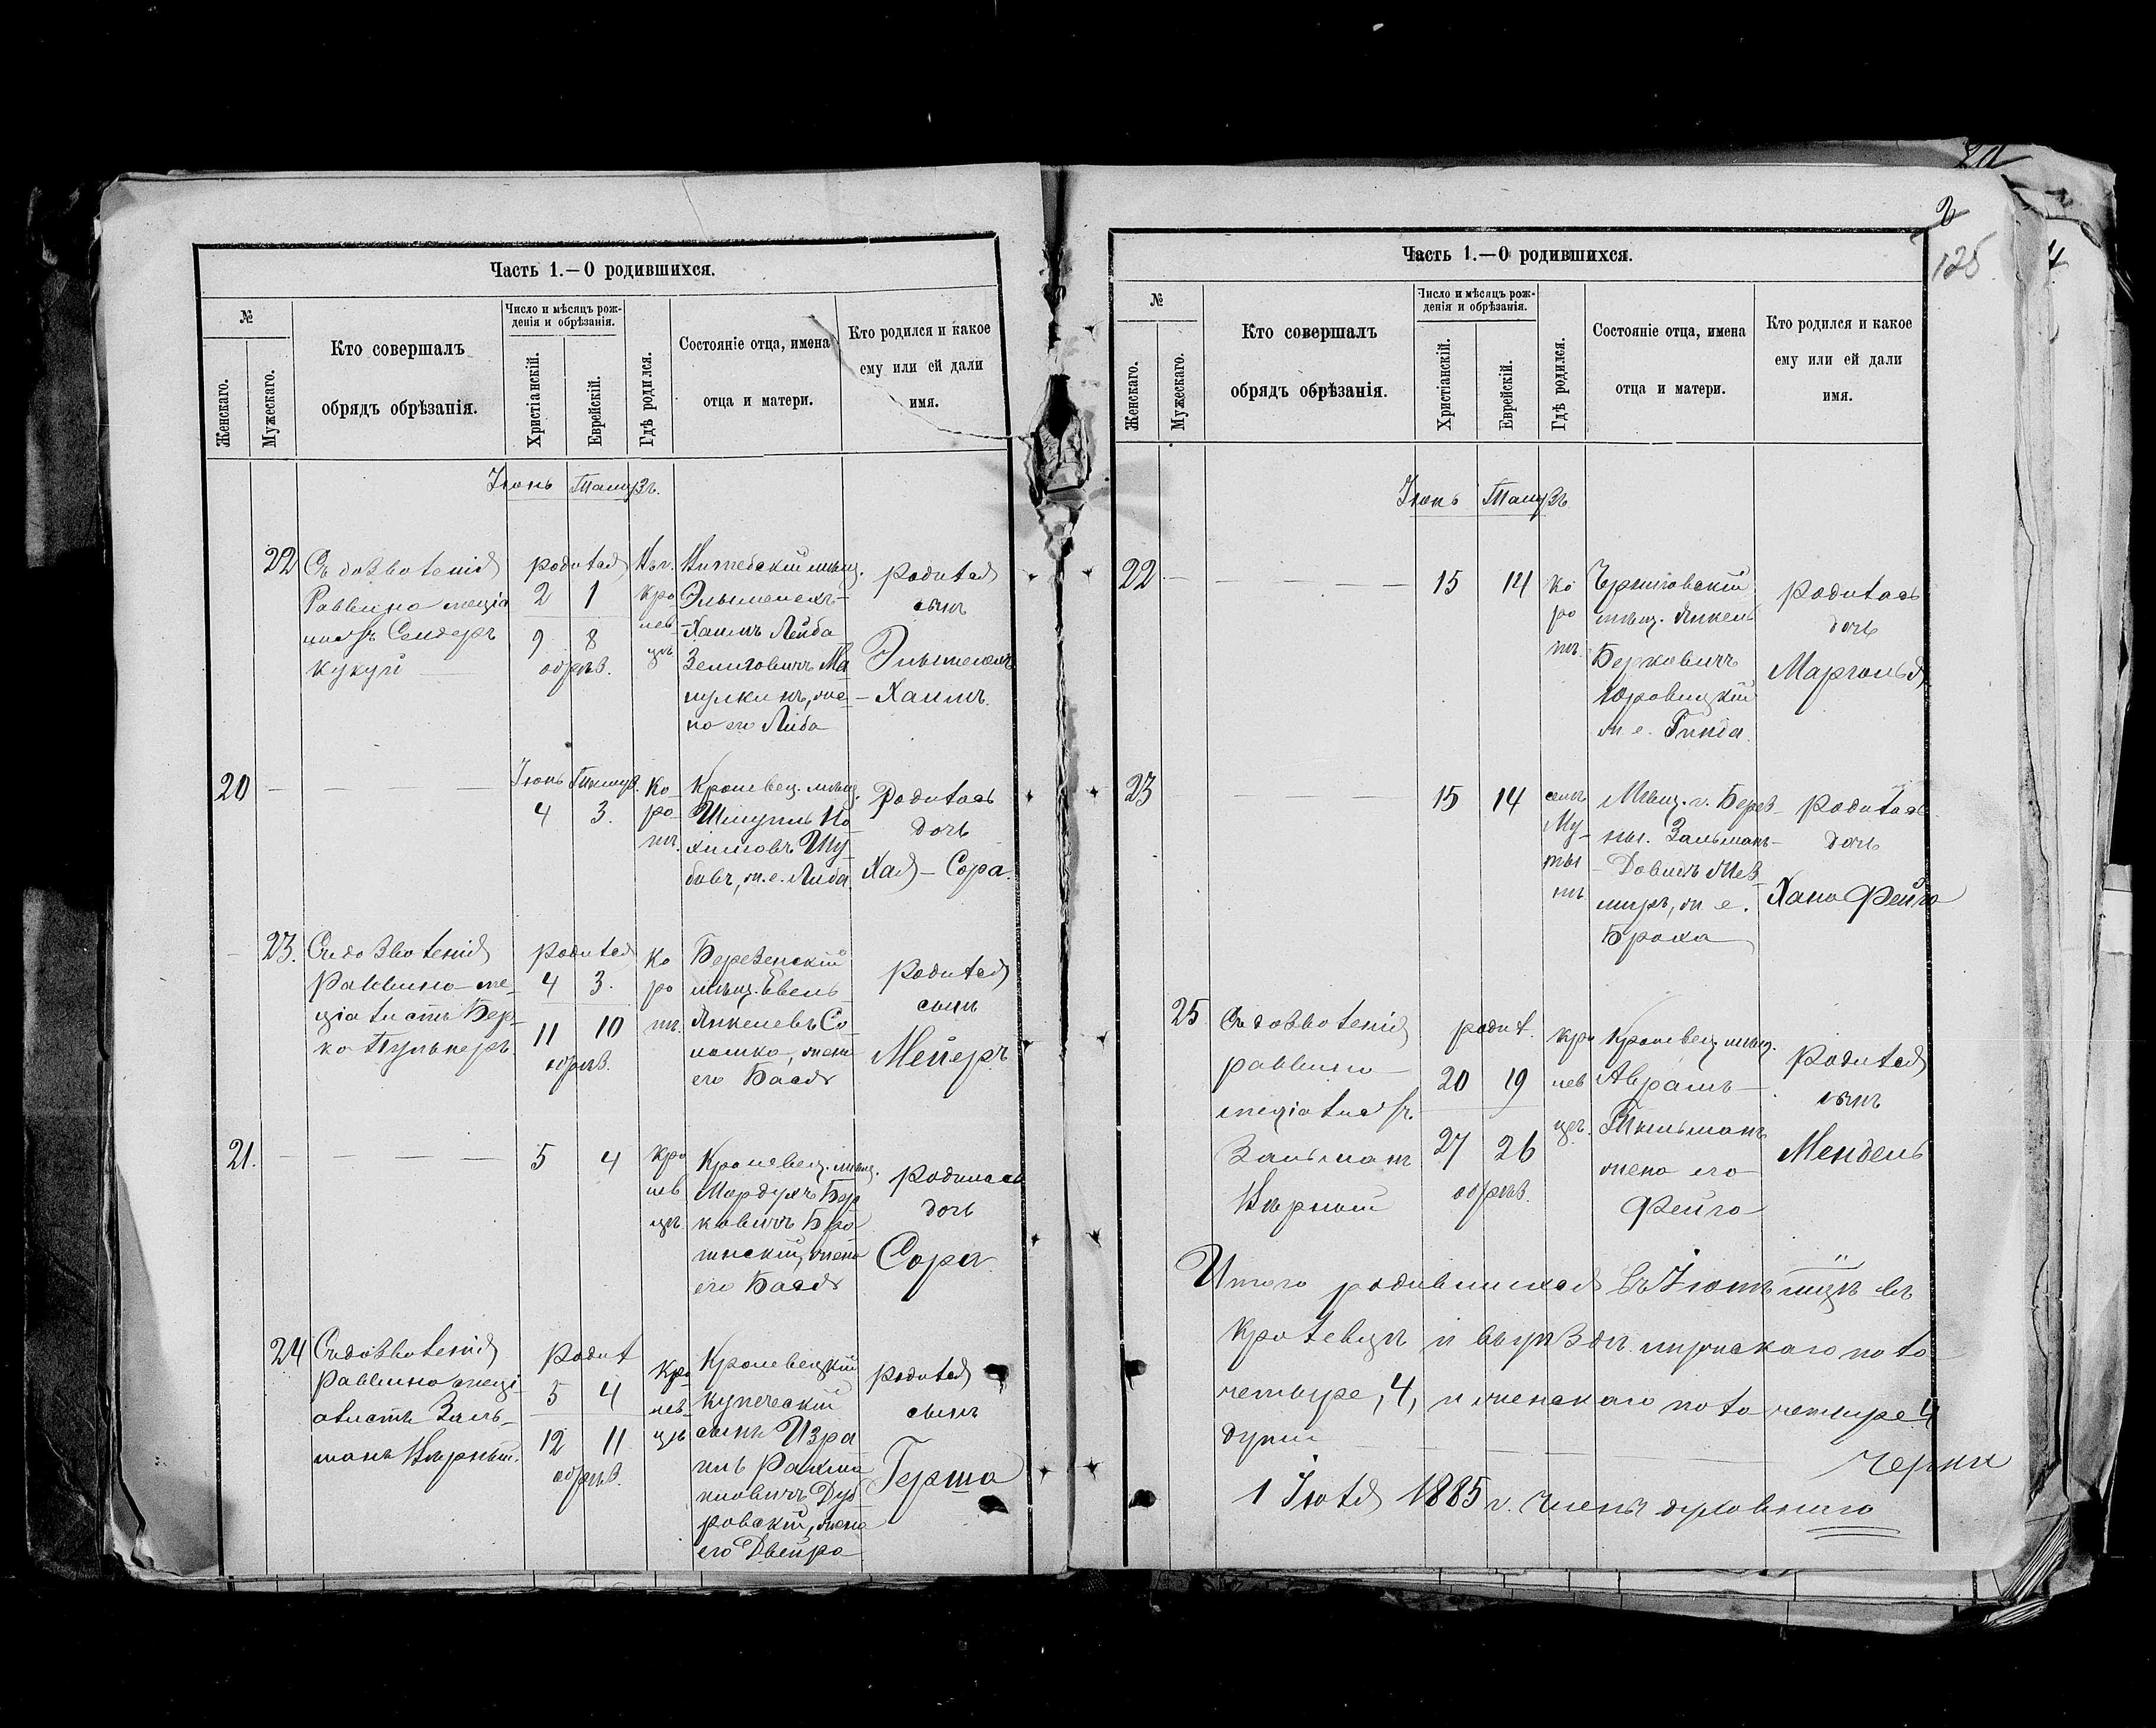 Часть 1.—О родившихся.
№
Женскаго.
Мужескаго.
Кто совершалъ
обрядъ обрѣзанія.
Число и мѣсяцъ рож-
денія и обрѣзанія.
Христіанскій.
Еврейскій.
Гдѣ родился.
Состояніе отца, имена
отца и матери.
Кто родился и какое
ему или ей дали
имя.
Іюнь Тамузъ.
22 Съ дозволенія
Раввина
Сендеръ
Кукуй
родился
2 1
9 8
обрѣз.
Кро
лев
цѣ
Витебскій мѣщ.
Элымелехъ-
-Хаимъ Лейба
Зелиговичъ Ма
шулкинъ, же-
на его Либа
родился
сынъ
Элымелехъ
-Хаимъ.
20 — — — —
Іюнь Тамуз.
4 3.
Ко
ро
пѣ.
Кролевец. мѣщ.
Шмуль Но
химовъ Шу
бовъ, ж. е. Либа
Родилась
дочь
Хая-Сора.
23. Съ дозволенія
Раввина спе-
ціалистъ Бер-
ко Тульперъ.
родился
4 3.
11 10
обрѣз.
ко
ро
пѣ.
Березенскій
мѣщ. Евель
Янкелевъ Со
ломко, жена
его Бася
родился
сынъ
Мейеръ
21. — — — —
5 4
Кро
лев
цѣ
Кролевец. мѣщ.
Мордухъ Бер
ковичъ Бра
гинскій, жена
его Бася
родилась
дочь
Сора.
24 Съ дозволенія
Раввина спеці-
алистъ Заль-
манъ Чорный.
родил
5 4
12 11
обрѣз.
Кро
лев-
цѣ
Кролевецкій
купеческій
сынъ Изра
иль Рахми
иловичъ Дуб
ровскій, жена
его Двейра
родился
сынъ
Герша
2
125
Часть 1.—О родившихся.
№
Женскаго.
Мужескаго.
Кто совершалъ
обрядъ обрѣзанія.
Число и мѣсяцъ рож-
денія и обрѣзанія.
Христіанскій.
Еврейскій.
Гдѣ родился.
Состояніе отца, имена
отца и матери.
Кто родился и какое
ему или ей дали
имя.
Іюнь Тамузъ
22 — — — —
15 14
ко
ро
пѣ.
Черниговскій
мѣщ. Янкель
Берковичъ
Юровицкій
ж. е. Гинда.
Родилась
дочь
Марголья
23 — —
15 14
Му-
ты
нѣ
Мѣщ. г. Берез-
ны. Зальманъ-
-Довидъ Мез-
миръ, ж. е.
Броха
родилась
дочь
Хана Фейга
25 Съ дозволенія
раввина
спеціалистъ
Зальманъ
Чорный
родил.
20 19
27 26
обрѣз.
Кро
лев
цѣ.
Кролевец. мѣщ.
Абрамъ
Тильманъ
жена его
Фейга
Родился
сынъ
Мендель
Итого родившихся въ Іюнѣ мцѣ въ
Кролевцѣ и въ уѣздѣ мужскаго пола
четыре, 4, и женскаго пола четыре 4
души — — — —
1 Іюля 1885 г. Членъ духовнаго